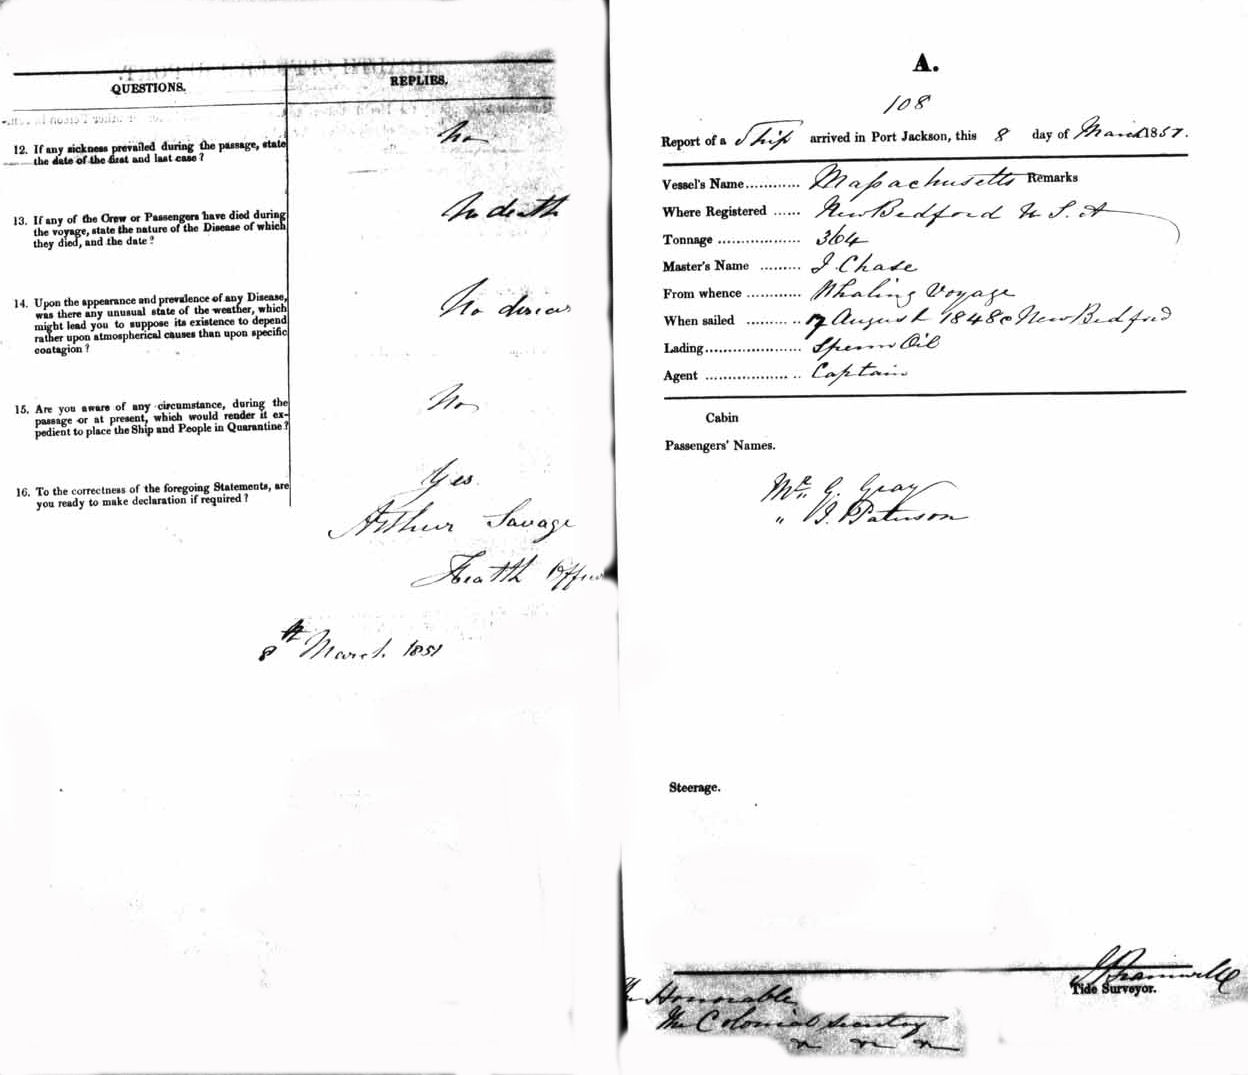 QUESTIONS.
REPLIES.
12. If any sickness prevailed during the passage, state
the date of the first and last case?
No
13. If any of the Crew or Passengers have died during
the voyage, state the nature of the Disease of which
they died, and the date?
No death
14. Upon the appearance and prevalence of any Disease,
was there any unusual state of the weather, which
might lead you to suppose its existence to depend
rather upon atmospherical causes than upon specific
contagion?
No diseas
15. Are you aware of any circumstance, during the
passage or at present, which would render it ex-
pedient to place the Ship and People in Quarantine?
No
16. To the correctness of the foregoing Statements, are
you ready to make declaration if required?
Yes
Arthur Savage
Health Officer
8th March 1851
A.
108
Report of a Ship arrived in Port Jackson, this 8 day of March 1851.
Vessel's Name............ Massachusetts Remarks
Where Registered ...... New Bedford U.S.A
Tonnage ................... 364
Master's Name ......... J. Chase
From whence ............ Whaling Voyage
When sailed ............ 17 August 1848 New Bedford
Lading..................... Sperm Oil
Agent ..................... Captain
Cabin
Passengers' Names.
Mr. G. Gray
" J. Paterson
Steerage.
Tide Surveyor.
The Honorable
The Colonial Secretary